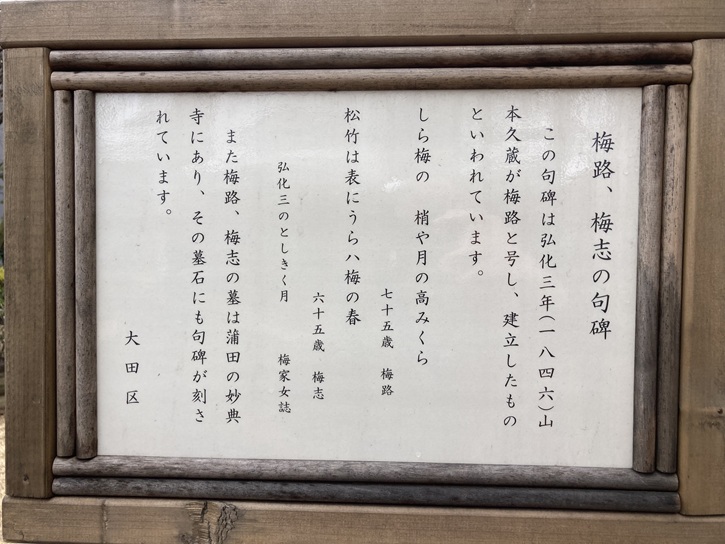 梅路、梅志の句碑
この句碑は弘化三年(一八四六)山
本久蔵が梅路と号し、建立したもの
といわれています。
しら梅の　梢や月の高みくら
七十五歳　梅路
松竹は表にうらハ梅の春
六十五歳　梅志
弘化三のとしきく月　梅家女誌
また梅路、梅志の墓は蒲田の妙典
寺にあり、その墓石にも句碑が刻さ
れています。
大田区